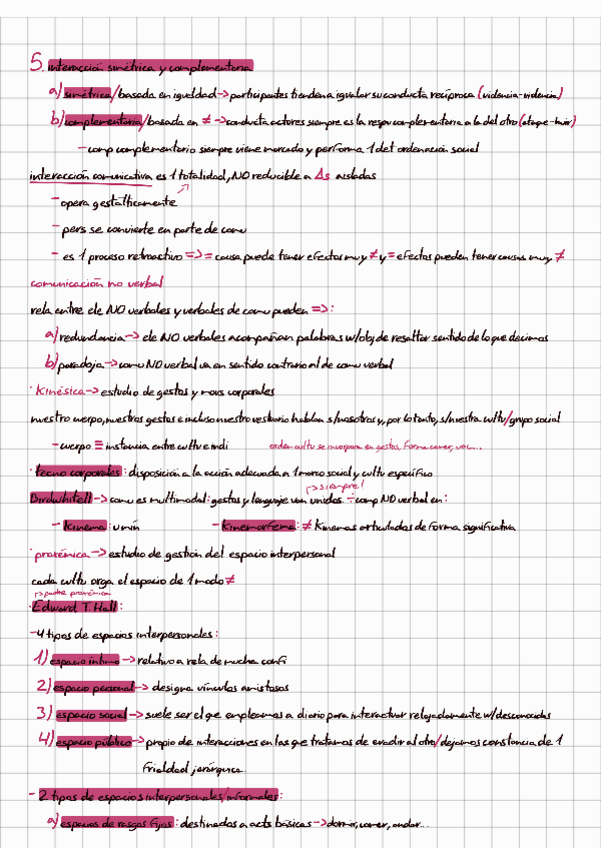 5. interacción simétrica y complementaria
a) simétrica/basada en igualdad -> participantes tienden a igualar su conducta recíproca (violencia-violencia)
b) complementaria/basada en ≠ -> conducta actores siempre es la respu complementaria a la del otro (ataque-huir)
- comp complementario siempre viene marcado y performa 1 det ordenación social
interacción comunicativa es 1 totalidad, NO reducible a Δs aisladas
- opera gestálticamente
- pers se convierte en parte de comu
- es 1 proceso retroactivo => = causa puede tener efectos muy ≠ y = efectos pueden tener causas muy ≠
comunicación no verbal
rela entre ele NO verbales y verbales de comu pueden =>:
a) redundancia -> ele NO verbales acompañan palabras w/obj de resaltar sentido de lo que decimos
b) paradoja -> comu NO verbal va en sentido contrario al de comu verbal
· Kinésica -> estudio de gestos y movs corporales
nuestro cuerpo, nuestros gestos e incluso nuestro vestuario hablan s/nosotros y, por lo tanto, s/nuestra cultu/grupo social
- cuerpo = instancia entre cultu e indi
cada cultu se incorpora en gestos, forma comer,
· tecno corporales: disposición a la acción adecuada a 1 marco social y cultu específico
siempre!
Birdwhistell -> comu es multimodal: gestos y lenguaje van unidos comp NO verbal en:
- Kinema: u mín - Kinemorfema: ≠ Kinemas articulados de forma significativa
· proxémica -> estudio de gestión del espacio interpersonal
cada cultu orga el espacio de 1 modo ≠
padre proxémica
· Edward T. Hall:
- 4 tipos de espacios interpersonales:
1) espacio íntimo -> relativo a rela de mucha confi
2) espacio personal -> designa vínculos amistosos
3) espacio social -> suele ser el que empleamos a diario para interactuar relajadamente w/desconocidos
4) espacio público -> propio de interacciones en las que tratamos de evadir al otro/dejamos constancia de 1
frialdad jerárquica
- 2 tipos de espacios interpersonales/informales:
a) espacios de rasgos fijos: destinados a acts básicas -> dormir, comer, andar...